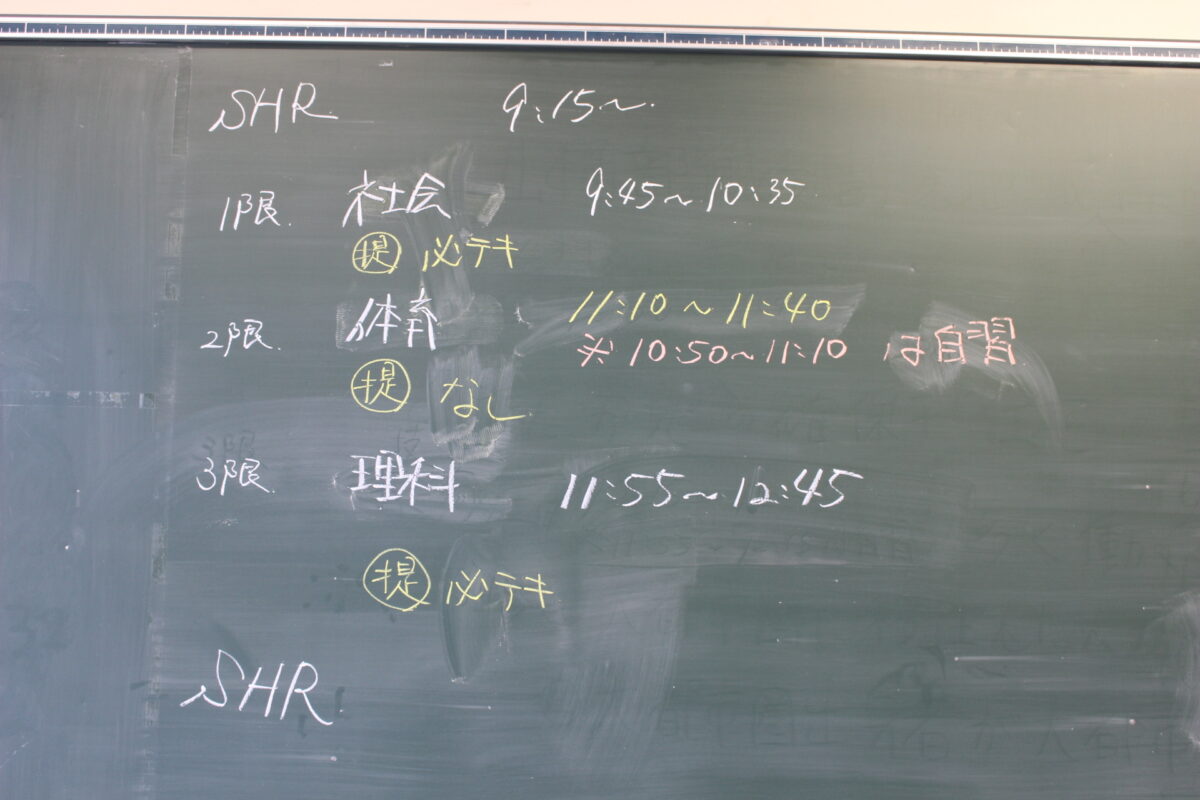 SHR 9:15～
1限. 社会 9:45～10:35
㊞提 必テキ
2限. 体育 11:10～11:40
※10:50～11:10 は自習
提 なし
3限. 理科 11:55～12:45
提 必テキ
SHR